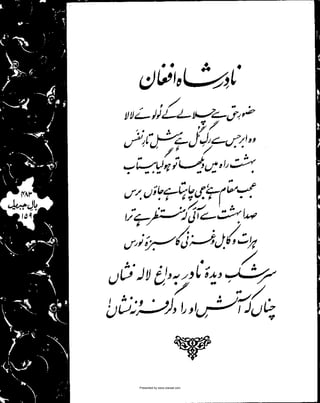 نادر شاہ افغان
حضورِ حق سے چلا لے کے لولوئے لالا
وہ ابر جس سے رگِ گل ہے مثلِ تارِ نفس
بہشت راہ میں دیکھا تو ہو گیا بیتاب
عجب مقام ہے، جی چاہتا ہے جاؤں برس
صدا بہشت سے آئی کہ منتظر ہے ترا
ہرات و کابل و غزنی کا سبزۂ نورس
سرشکِ دیدۂ نادر بہ داغِ لالہ فشاں
چناں کہ آتشِ او را دگر فرونہ نشاں!
۴۸۳
بالِ جبریل
۱۵۹